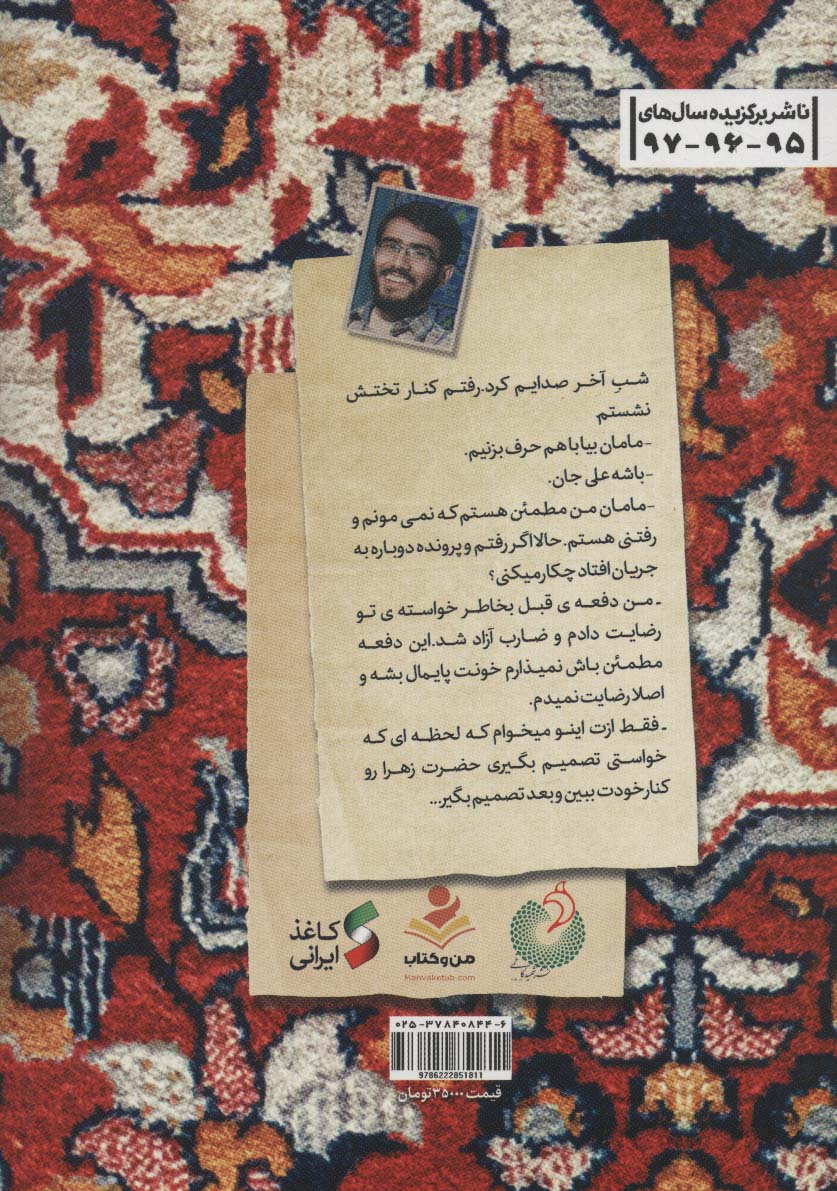 ناشر برگزیده سال‌های
۹۵-۹۶-۹۷
شبِ آخر صدایم کرد.رفتم کنار تختش
نشستم
-مامان بیا باهم حرف بزنیم.
-باشه علی جان.
-مامان من مطمئن هستم که نمی مونم و
رفتنی هستم.حالا اگر رفتم و پرونده دوباره به
جریان افتاد چکار میکنی؟
- من دفعه ی قبل بخاطر خواسته ی تو
رضایت دادم و ضارب آزاد شد.این دفعه
مطمئن باش نمیذارم خونت پایمال بشه و
اصلا رضایت نمیدم.
- فقط ازت اینو میخوام که لحظه ای که
خواستی تصمیم بگیری حضرت زهرا رو
کنار خودت ببین و بعد تصمیم بگیر...
کاغذ
ایرانی
من و کتاب
Manvaketab.com
نشر شهید کاظمی
۰۲۵-۳۷۸۴۰۸۴۴-۶
9786222851811
قیمت ۳۵۰۰۰ تومان